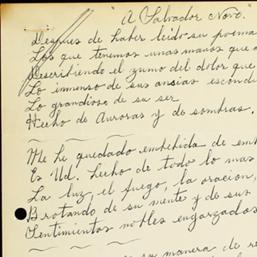 "A Salvador Novo."
Despues de haber leido su poema
Los que tenemos unas manos que
Describiendo el zumo del dolor que
Lo inmenso de sus ansias escondi
Lo grandioso de su ser
Hecho de Auroras y de sombras.
Me he quedado embebida de em
Es Ud. hecho de todo lo mas
La luz, el fuego, la oracion,
Brotando de su mente y de sus
Sentimientos nobles engarzados
su manera de re